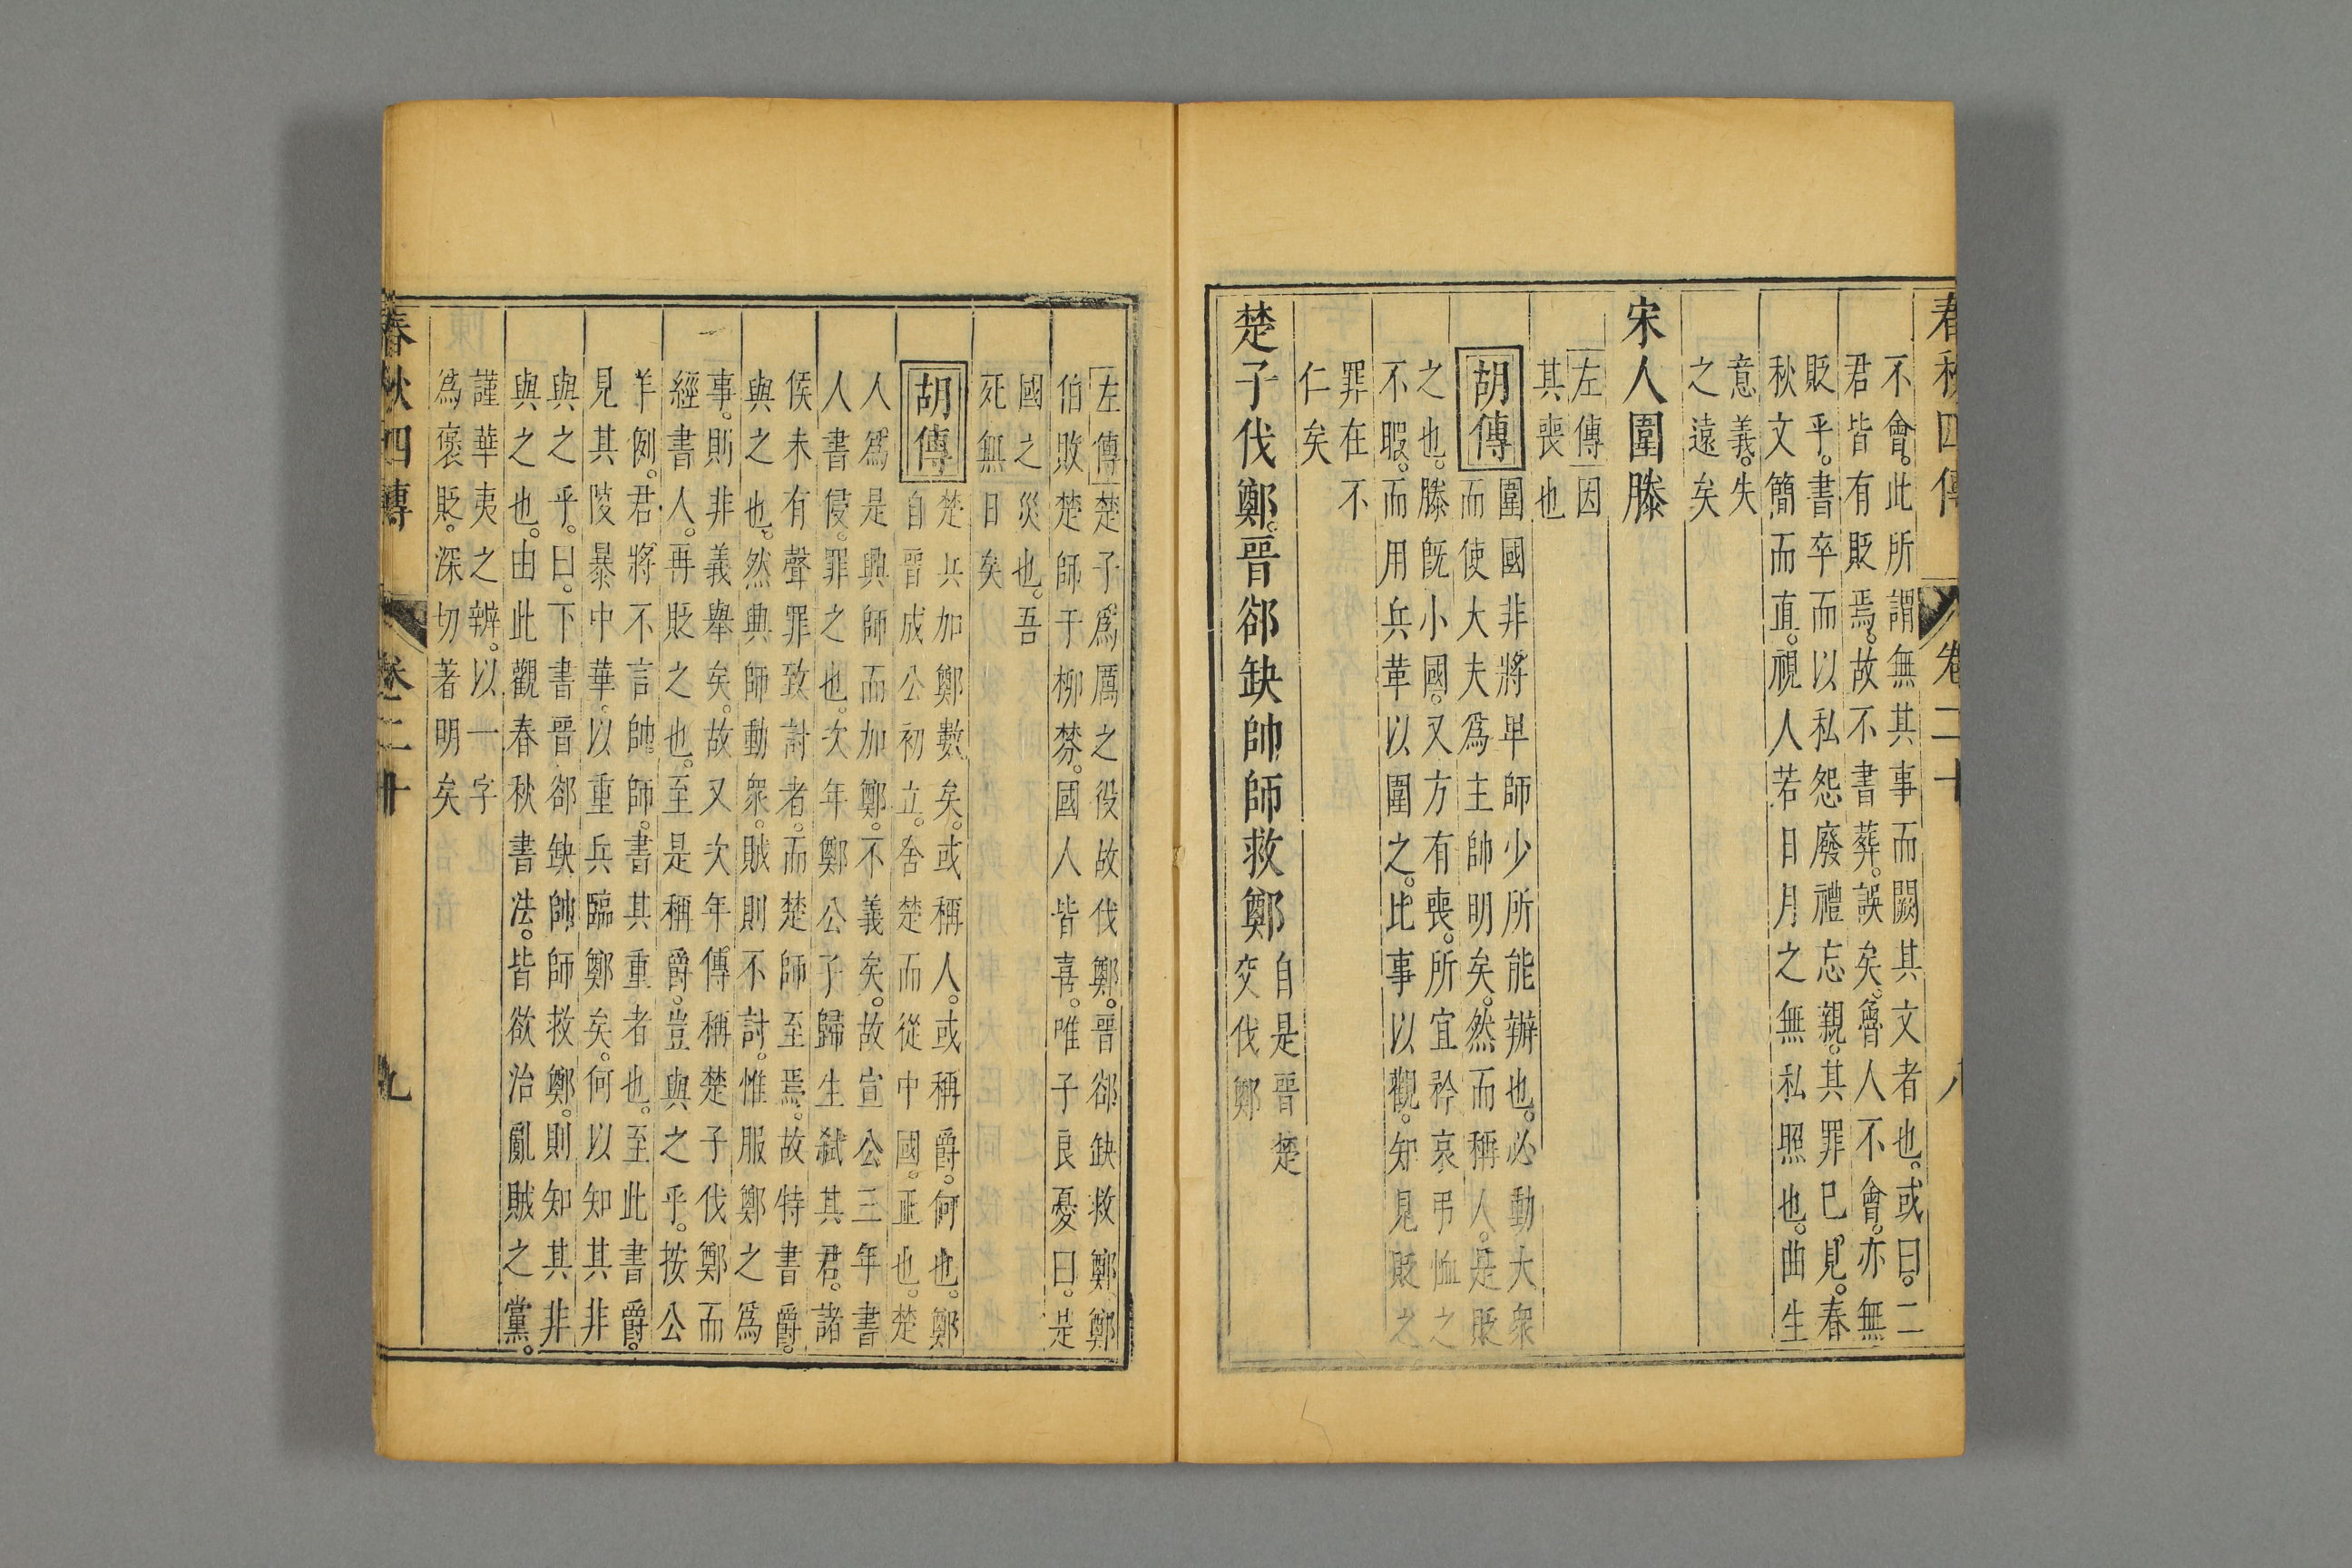 春秋四傳 卷二十 八
不會。此所謂無其事而闕其文者也。或曰。二
君皆有貶焉。故不書葬。誤矣。魯人不會。亦無
貶乎。書卒而以私怨廢禮忘親。其罪已見。春
秋文簡而直。視人若日月之無私照也。曲生
意義。失
之遠矣
宋人圍滕
左傳因
其喪也
胡傳圍國非將卑師少所能辦也。必動大衆
而使大夫爲主帥明矣。然而稱人。是貶
之也。滕旣小國。又方有喪。所宜矜哀弔恤之
不暇。而用兵革以圍之。比事以觀。知見貶之
罪在不
仁矣
楚子伐鄭。晉郤缺帥師救鄭
自是晉楚
交伐鄭
左傳楚子爲厲之役故伐鄭。晉郤缺救鄭鄭
伯敗楚師于柳棼。國人皆喜。唯子良憂曰。是
國之災也。吾
死無日矣
胡傳楚兵加鄭數矣。或稱人。或稱爵。何也。鄭
自晉成公初立。舍楚而從中國。正也。楚
人爲是興師而加鄭。不義矣。故宣公三年書
人書侵。罪之也。次年鄭公子歸生弑其君。諸
侯未有聲罪致討者。而楚師至焉。故特書爵。
與之也。然興師動衆。賊則不討。惟服鄭之爲
事。則非義舉矣。故又次年。傳稱楚子伐鄭而
經書人。再貶之也。至是稱爵。豈與之乎。按公
羊例。君將不言帥師。書其重者也。至此書爵。
見其陵暴中華。以重兵臨鄭矣。何以知其非
與之乎。曰。下書晉郤缺帥師救鄭。則知其非
與之也。由此觀春秋書法。皆欲治亂賊之黨。
謹華夷之辨。以一字
爲褒貶。深切著明矣
春秋四傳 卷二十 九